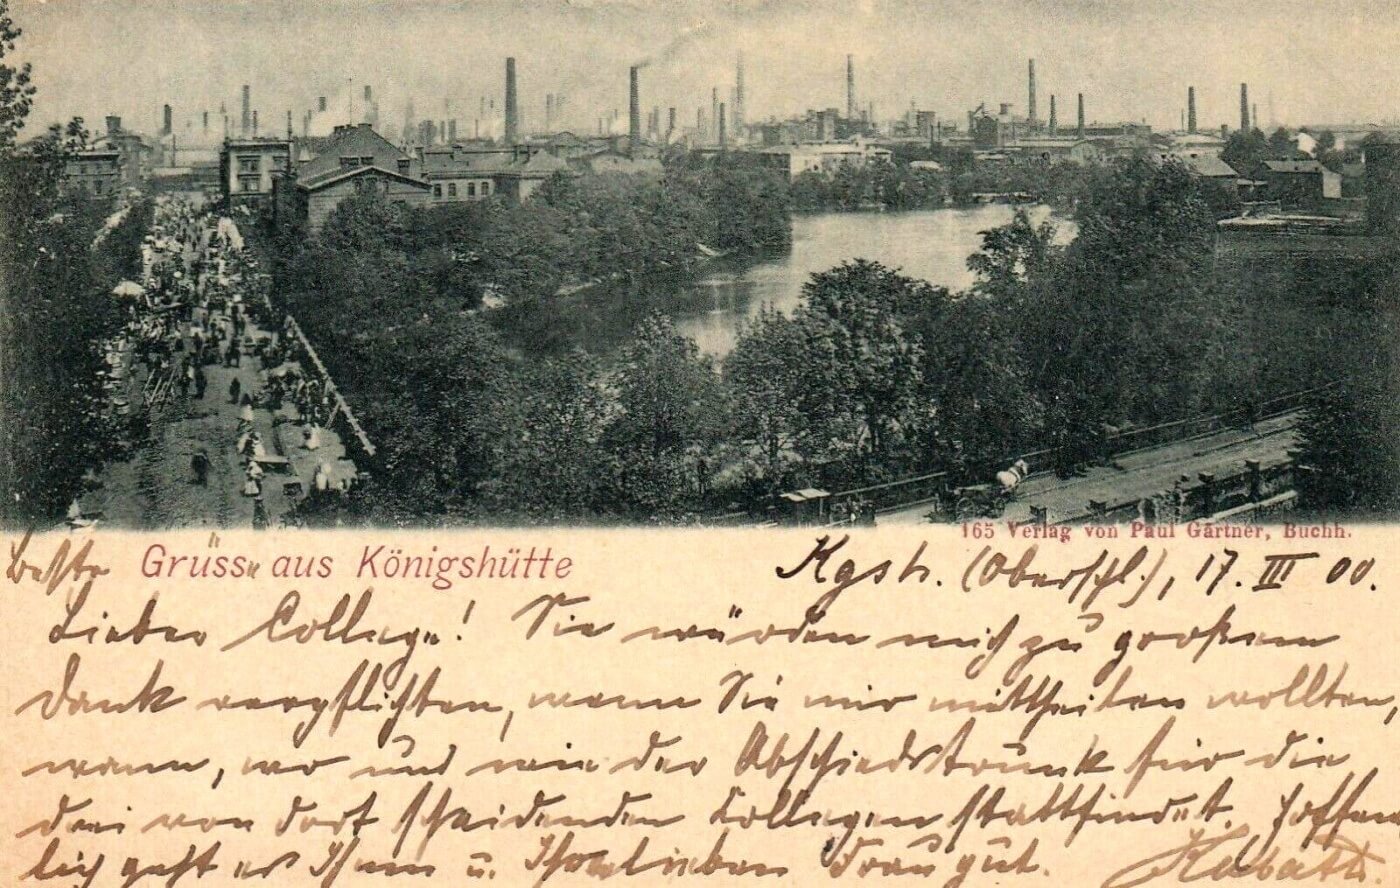 165 Verlag von Paul Gärtner, Buchh.
Beste Grüsse aus Königshütte Kgsh. (Oberschl.), 17. III 00.
Lieber College! Sie würden mich zu großem
Dank verpflichten, wenn Sie mir mittheilen wollten,
wann, wo und wie der Abschiedstrunk für die
drei von dort scheidenden Collegen stattfindet. Hoffent
lich geht es Ihnen u. Ihrer lieben Frau gut.